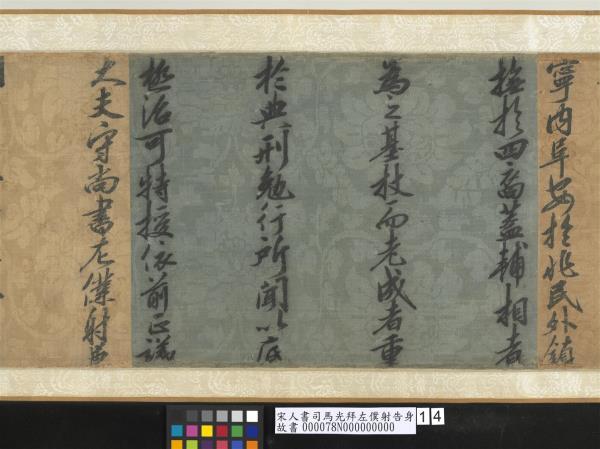 寧內阜安於兆民外鎮
撫於四裔蓋輔相者
為之基杖而老成者重
於典刑勉行所聞以底
極治可特授依前正議
大夫守尚書左僕射兼
宋人書司馬光拜左僕射告身 14
故書 000078N000000000